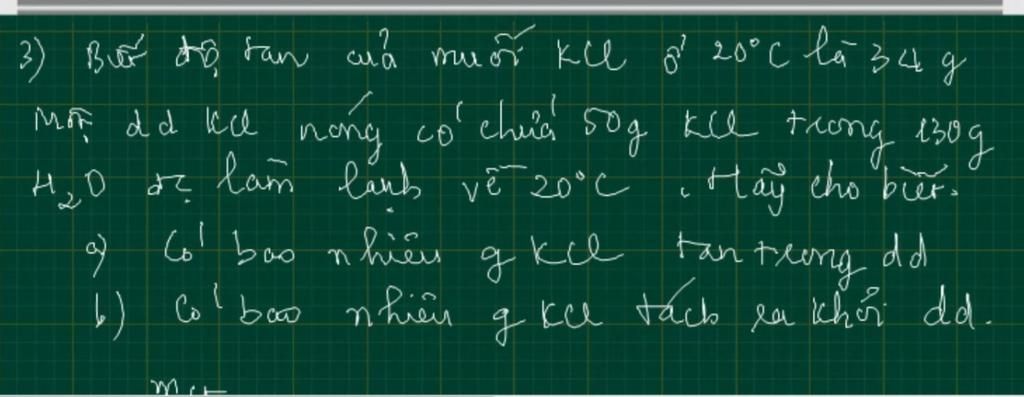 3) Biết độ tan của muối KCl ở 20°C là 34 g
Một dd KCl nóng có chứa 50g KCl trong 130g
H₂O đc làm lạnh về 20°C . Hãy cho biết.
a) Có bao nhiêu g KCl tan trong dd
b) Có bao nhiêu g KCl tách ra khỏi dd.